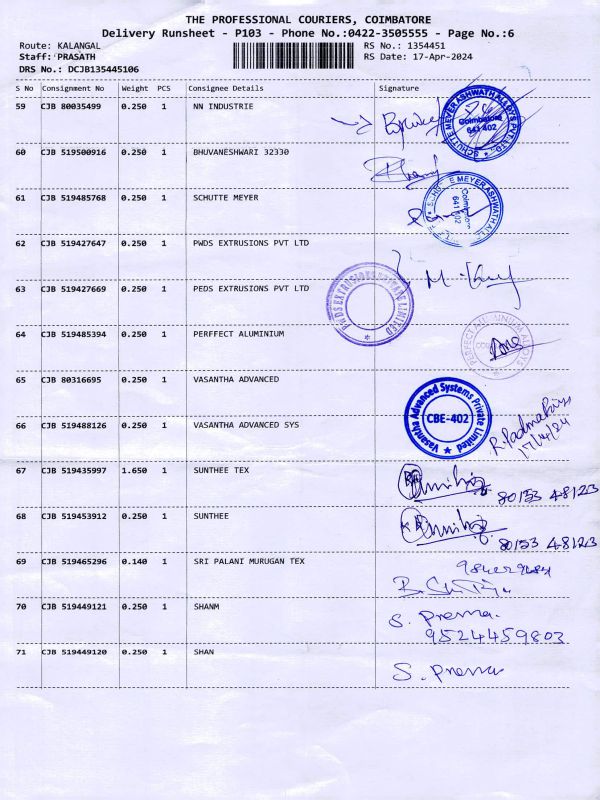 THE PROFESSIONAL COURIERS, COIMBATORE
Delivery Runsheet - P103 - Phone No.:0422-3505555 - Page No.:6
Route: KALANGAL
RS No.: 1354451
Staff: PRASATH
RS Date: 17-Apr-2024
DRS No.: DCJB135445106
S No Consignment No Weight PCS Consignee Details Signature
59 CJB 80035499 0.250 1 NN INDUSTRIE
SCHUTTE MEYER ASHWATH ALLOYS PVT. LTD.
Coimbatore
641 402
60 CJB 519500916 0.250 1 BHUVANESHWARI 32330
61 CJB 519485768 0.250 1 SCHUTTE MEYER
MEYER ASHWATH
Coimbatore
641 402
62 CJB 519427647 0.250 1 PWDS EXTRUSIONS PVT LTD
63 CJB 519427669 0.250 1 PEDS EXTRUSIONS PVT LTD
PWDS EXTRUSIONS PRIVATE LIMITED
64 CJB 519485394 0.250 1 PERFFECT ALUMINIUM
PERFECT ALUMINIUM ALLOYS
65 CJB 80316695 0.250 1 VASANTHA ADVANCED
Vasantha Advanced Systems Private Limited
CBE-402
66 CJB 519488126 0.250 1 VASANTHA ADVANCED SYS
17/4/24
67 CJB 519435997 1.650 1 SUNTHEE TEX
80153 48123
68 CJB 519453912 0.250 1 SUNTHEE
80153 48123
69 CJB 519465296 0.140 1 SRI PALANI MURUGAN TEX
70 CJB 519449121 0.250 1 SHANM
S. Prema.
9524459803
71 CJB 519449120 0.250 1 SHAN
S. Prema